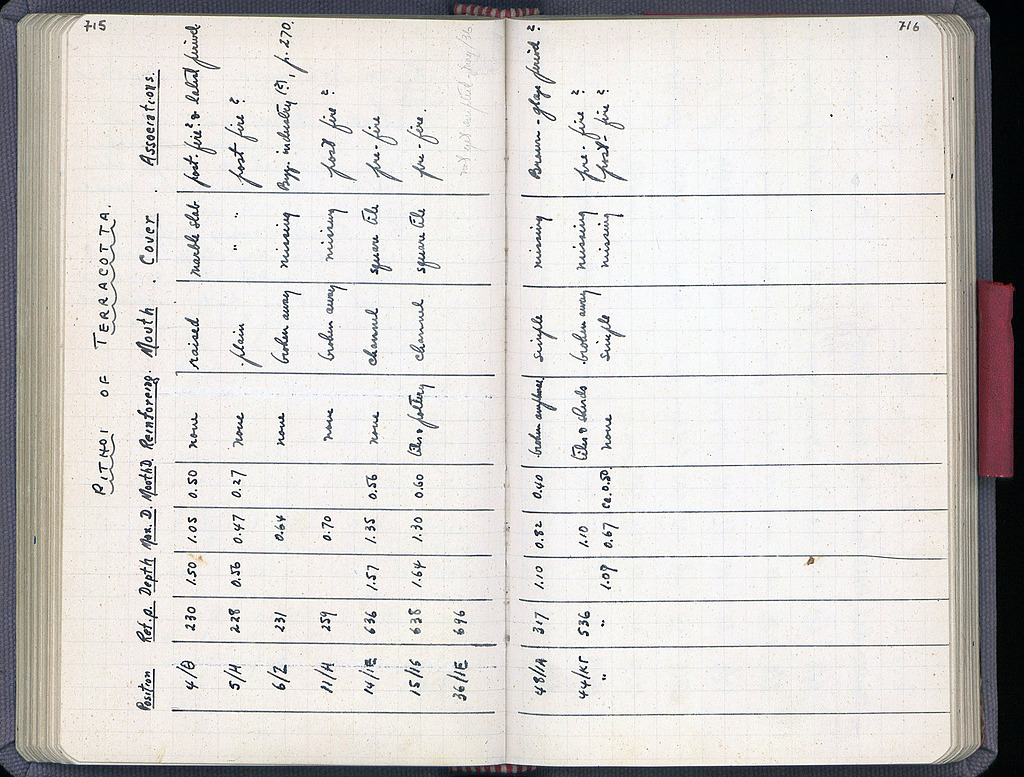 715
PITHOI OF TERRACOTTA.
Position Ref. p. Depth Max. D. Mouth D. Reinforcing. Mouth. Cover. Associations.
4/Θ 230 1.50 1.05 0.50 none raised marble slab post-fire? & latest period
5/H 228 0.56 0.47 0.27 none plain " " post fire?
6/Z 231 0.64 none broken away missing Byz. industry (?), p. 270.
11/H 259 0.70 none broken away missing post fire?
14/ΙΕ 636 1.57 1.35 0.56 none channel square tile pre-fire
15/ΙϚ 638 1.64 1.30 0.60 tiles & pottery channel square tile pre-fire.
36/ΙΕ 696 not yet emptied
716
48/ΙΑ 317 1.10 0.82 0.40 broken amphorae simple missing Brown-glaze period?
44/ΚΓ 536 1.10 tiles & sherds broken away missing pre-fire?
" " 1.09 0.67 ca. 0.50 none simple missing post-fire?